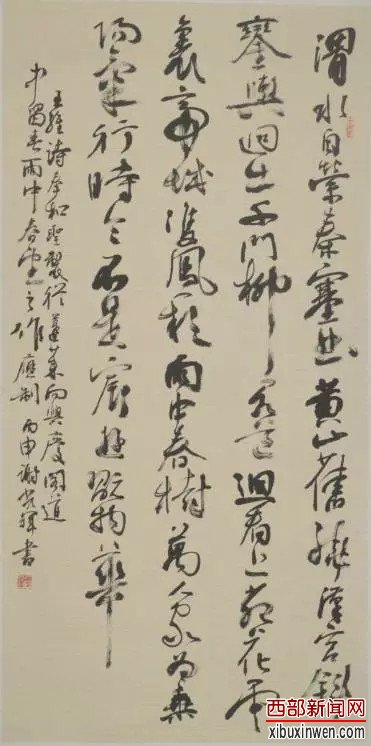 渭水自縈秦塞曲黄山舊繞漢宫斜
鑾輿迥出千門柳閣道迴看上苑花雲
裏帝城雙鳳闕雨中春樹萬人家為乘
陽氣行時令不是宸遊翫物華
王維詩奉和聖製從蓬萊向興慶閣道
中留春雨中春望之作應制 丙申謝輝書
西部新闻网
xibuxinwen.com